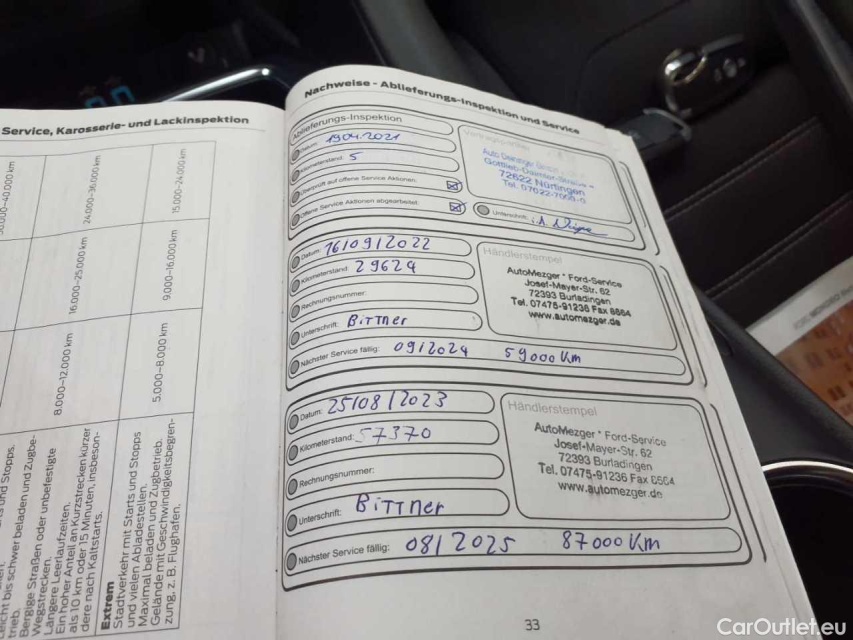 Service, Karosserie- und Lackinspektion
24.000–36.000 km
15.000–24.000 km
16.000–25.000 km
9.000–16.000 km
8.000–12.000 km
5.000–8.000 km
leicht bis schwer beladen und Zugbe-
trieb.
Bergige Straßen oder unbefestigte
Wegstrecken.
Längere Leerlaufzeiten.
Ein hoher Anteil an Kurzstrecken kürzer
als 10 km oder 15 Minuten, insbeson-
dere nach Kaltstarts.
Extrem
Stadtverkehr mit Starts und Stopps
und vielen Abladestellen.
Maximal beladen und Zugbetrieb.
Gelände mit Geschwindigkeitsbegren-
zung, z. B. Flughafen.
Nachweise - Ablieferungs-Inspektion und Service
Ablieferungs-Inspektion
Datum: 19.04.2021
Kilometerstand: 5
Überprüft auf offene Service Aktionen:
Offene Service Aktionen abgearbeitet:
72622 Nürtingen
Unterschrift:
Datum: 16/09/2022
Kilometerstand: 29624
Rechnungsnummer:
Unterschrift: Bittner
Nächster Service fällig: 09/2024 59000 Km
Händlerstempel
AutoMezger * Ford-Service
Josef-Mayer-Str. 62
72393 Burladingen
Tel. 07475-91236 Fax 8664
www.automezger.de
Datum: 25/08/2023
Kilometerstand: 57370
Rechnungsnummer:
Unterschrift: Bittner
Nächster Service fällig: 08/2025 87000 Km
Händlerstempel
AutoMezger * Ford-Service
Josef-Mayer-Str. 62
72393 Burladingen
Tel. 07475-91236 Fax 8664
www.automezger.de
33
CarOutlet.eu